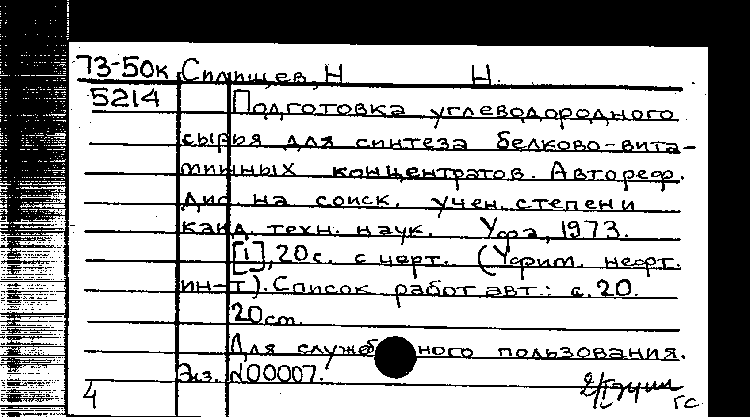 73-50к Спищев, Н Н.
5214 Подготовка углеводородного
сырья для синтеза белково-вита-
минных концентратов. Автореф.
дис на соиск. учен. степени
канд. техн. наук. Уфа, 1973.
[1], 20с. с черт. (Уфим. нефт.
ин-т). Список работ авт.: с. 20.
20см.
Для служебного пользования.
Экз. №00007.
4 ГС